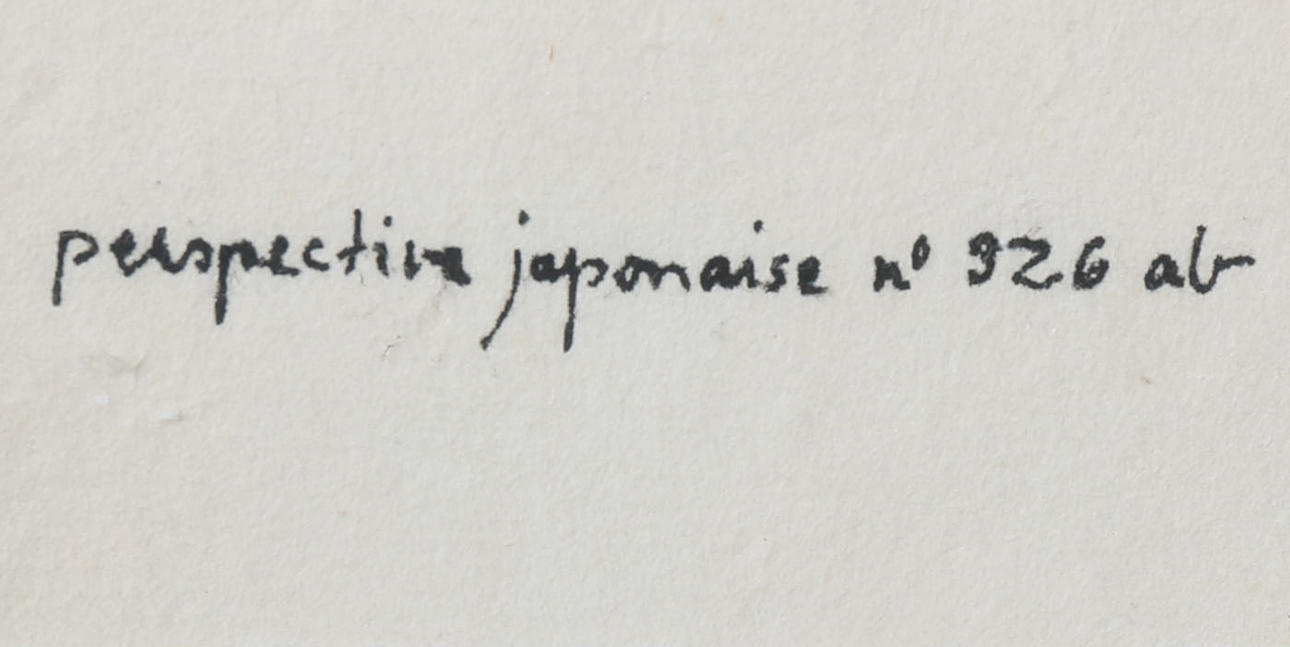 perspective japonaise nº 926 ab